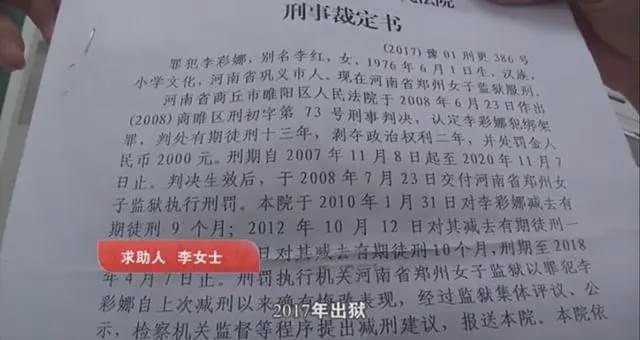 民法院
刑事裁定书
(2017)豫01刑更386号
罪犯李彩娜，别名李红，女，1976年6月1日生，汉族，
小学文化，河南省巩义市人。现在河南省郑州女子监狱服刑。
河南省商丘市睢阳区人民法院于2008年6月23日作出
(2008)商睢区刑初字第73号刑事判决，认定李彩娜犯绑架
罪，判处有期徒刑十三年，剥夺政治权利二年，并处罚金人
民币2000元。刑期自2007年11月8日起至2020年11月7
日止。判决生效后，于2008年7月23日交付河南省郑州女
子监狱执行刑罚。本院于2010年1月31日对李彩娜减去有
期徒刑9个月；2012年10月12日对其减去有期徒刑一
日对其减去有期徒刑10个月，刑期至2018
求助人 李女士
年4月7日止。刑罚执行机关河南省郑州女子监狱以罪犯李
彩娜自上次减刑以来确有悔改表现，经过监狱集体评议、公
示，检察机关监督等程序提出减刑建议，报送本院。本院依
2017年出狱